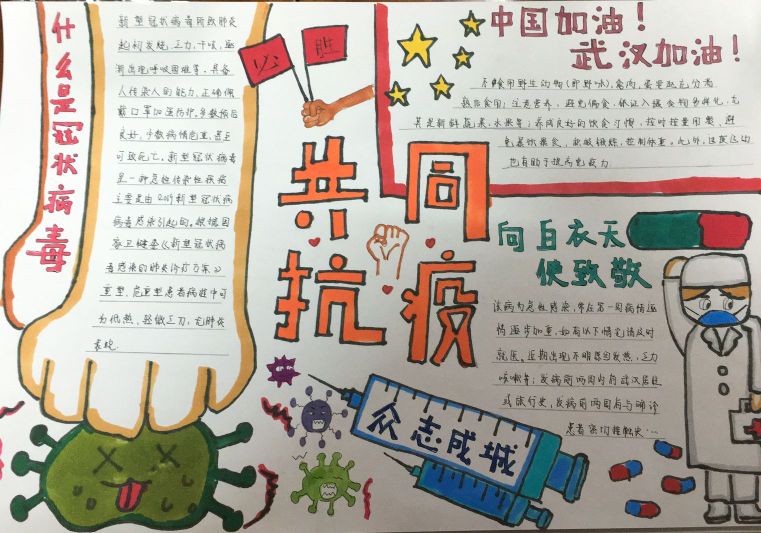 什么是冠状病毒
新型冠状病毒所致肺炎
起初发烧，乏力，干咳，逐
渐出现呼吸困难等，具备
人传染人的能力，正确佩
戴口罩加强防护，多数预后
良好，少数病情危重，甚且
可致死亡。新型冠状病毒
是一种急性传染性疾病
主要是由2019新型冠状病
病毒感染引起的。根据国
家卫健委《新型冠状病
毒感染的肺炎诊疗方案》
重型，危重型患者病程中可
为低热，轻微乏力，无肺炎
表现
必胜
共同
抗疫
中国加油！
武汉加油！
不食用野生动物（即野味），禽肉，蛋要起充分煮
熟后食用；注意营养，避免偏食，保证入摄食物多样化，尤
其是新鲜蔬果，水果等；养成良好的饮食习惯，按时按量用餐，避
免暴饮暴食，积极锻炼，控制体重。此外，适度运动
也有助于提高免疫力
向白衣天
使致敬
该病为急性感染，常在第一周病情逐
情逐步加重，如有以下情况请及时
就医。近期出现不明原因发热，乏力
咳嗽者；发病前两周内有武汉居住
或旅行史，发病前两周有与确诊
患者密切接触史…
众志成城